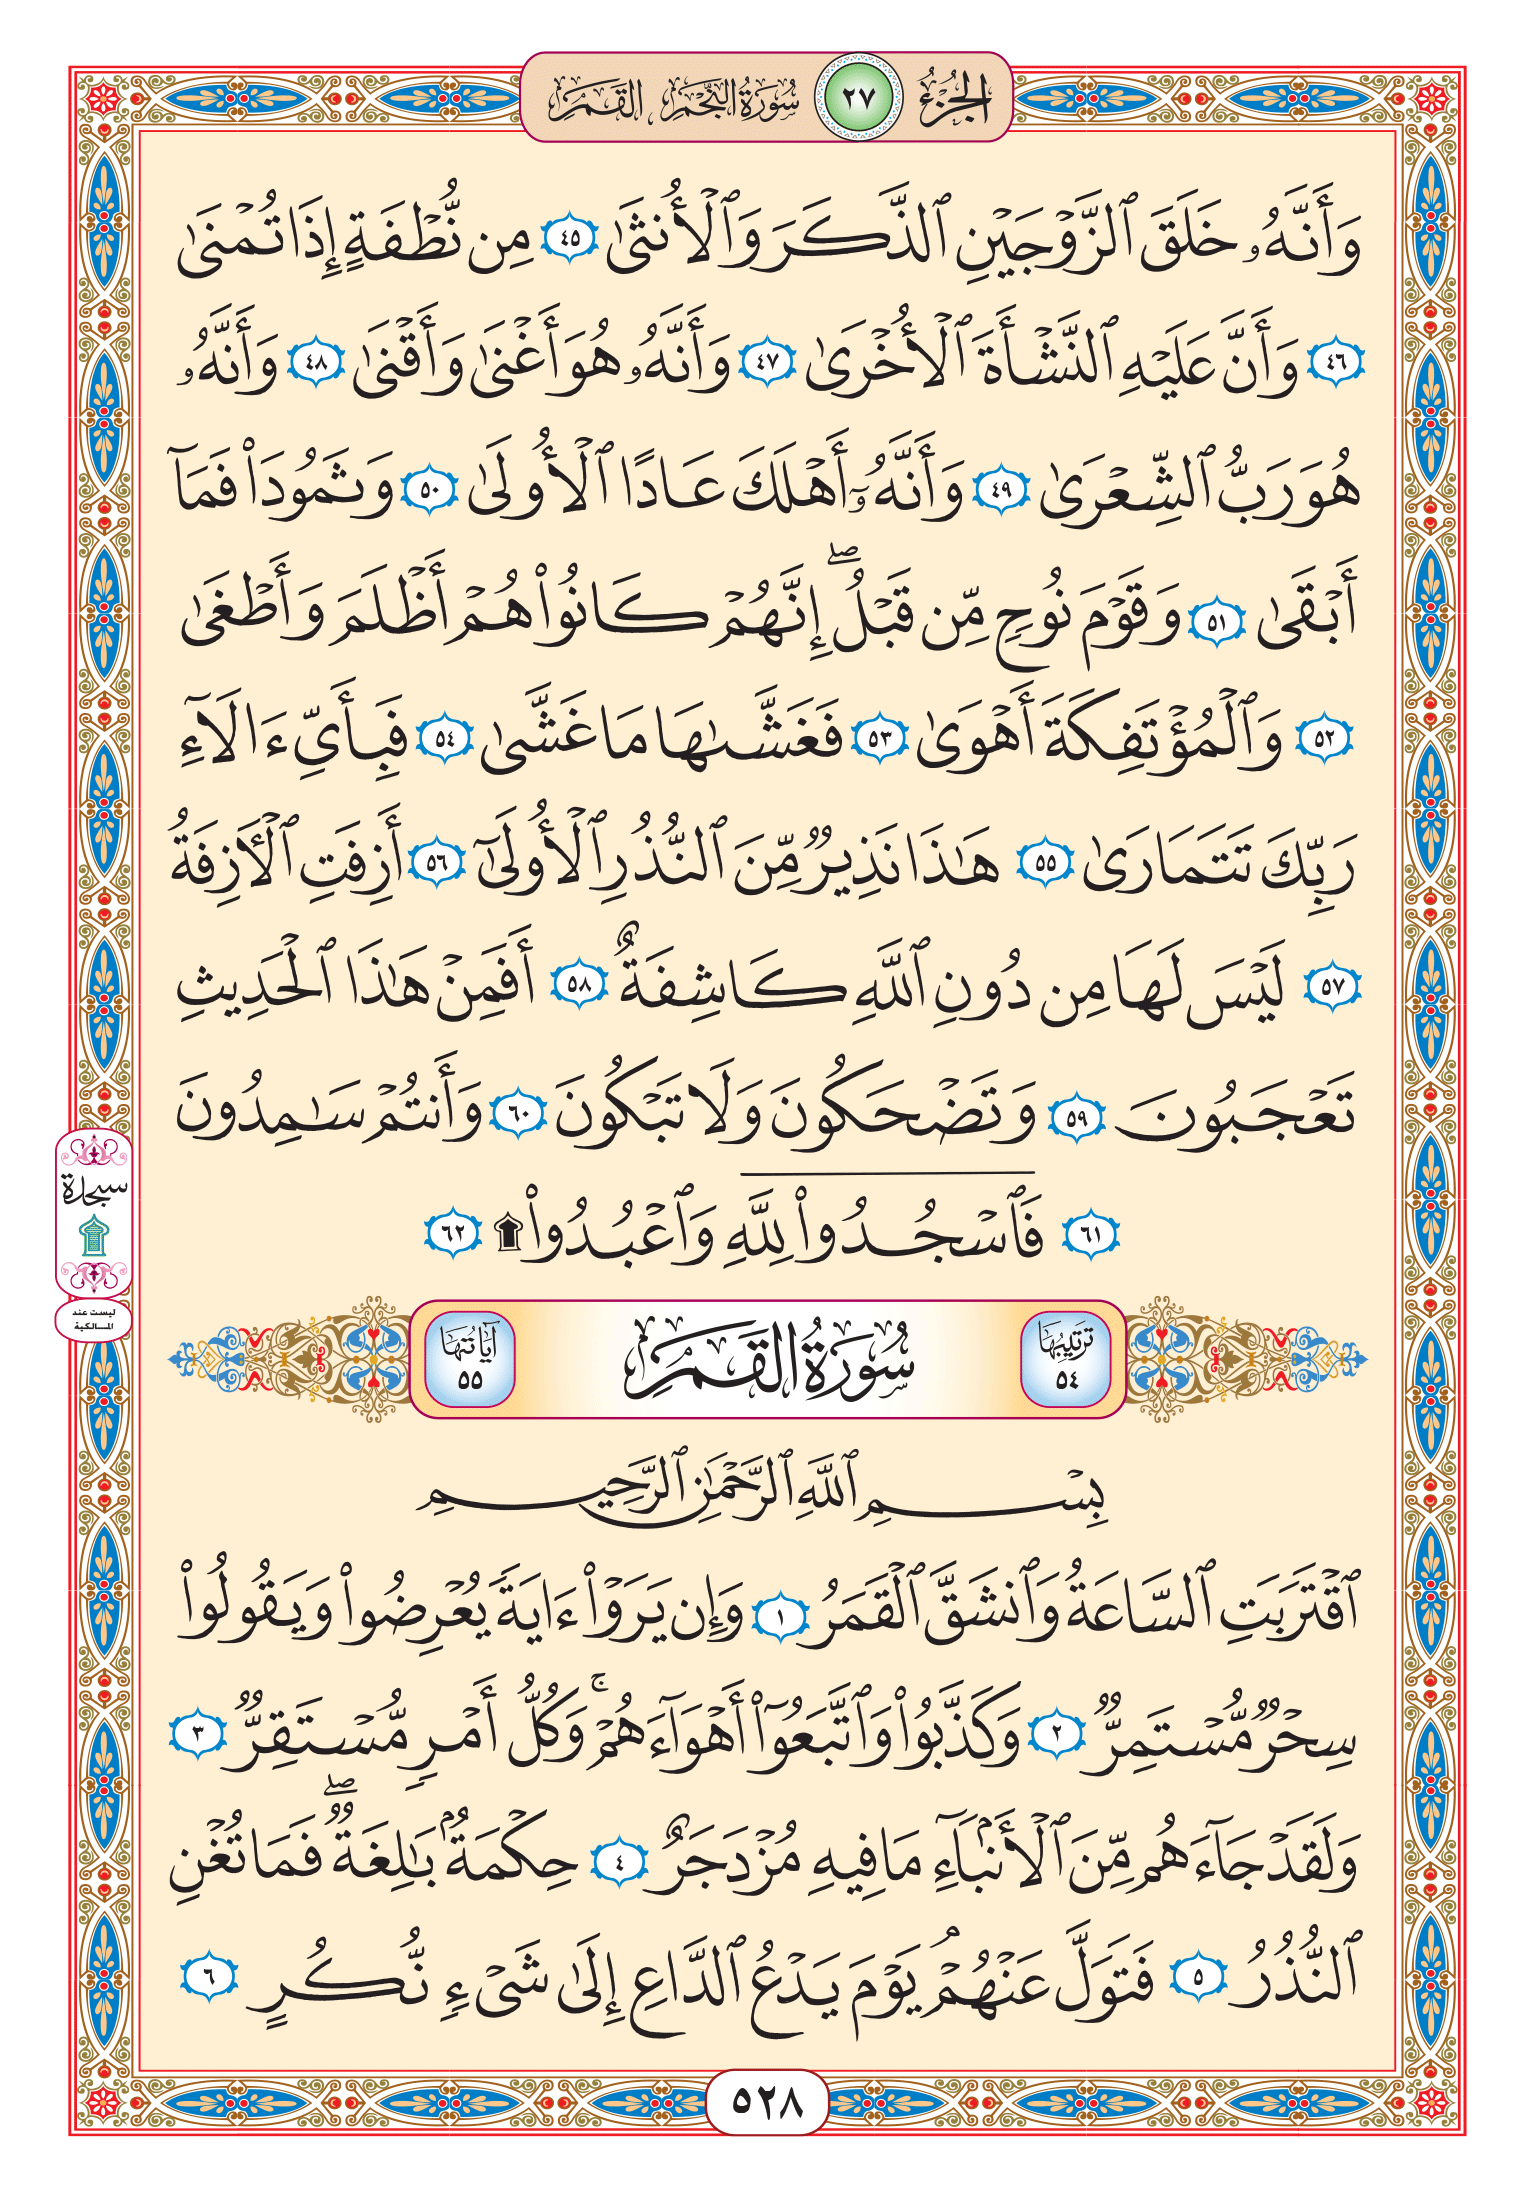 الجزء ٢٧ سورة النجم القمر
وَأَنَّهُۥ خَلَقَ ٱلزَّوْجَيْنِ ٱلذَّكَرَ وَٱلْأُنثَىٰ ٤٥ مِن نُّطْفَةٍ إِذَا تُمْنَىٰ
٤٦ وَأَنَّ عَلَيْهِ ٱلنَّشْأَةَ ٱلْأُخْرَىٰ ٤٧ وَأَنَّهُۥ هُوَ أَغْنَىٰ وَأَقْنَىٰ ٤٨ وَأَنَّهُۥ
هُوَ رَبُّ ٱلشِّعْرَىٰ ٤٩ وَأَنَّهُۥٓ أَهْلَكَ عَادًا ٱلْأُولَىٰ ٥٠ وَثَمُودَا۟ فَمَآ
أَبْقَىٰ ٥١ وَقَوْمَ نُوحٍ مِّن قَبْلُ ۖ إِنَّهُمْ كَانُوا۟ هُمْ أَظْلَمَ وَأَطْغَىٰ
٥٢ وَٱلْمُؤْتَفِكَةَ أَهْوَىٰ ٥٣ فَغَشَّىٰهَا مَا غَشَّىٰ ٥٤ فَبِأَىِّ ءَالَآءِ
رَبِّكَ تَتَمَارَىٰ ٥٥ هَـٰذَا نَذِيرٌ مِّنَ ٱلنُّذُرِ ٱلْأُولَىٰٓ ٥٦ أَزِفَتِ ٱلْـَٔازِفَةُ
٥٧ لَيْسَ لَهَا مِن دُونِ ٱللَّهِ كَاشِفَةٌ ٥٨ أَفَمِنْ هَـٰذَا ٱلْحَدِيثِ
تَعْجَبُونَ ٥٩ وَتَضْحَكُونَ وَلَا تَبْكُونَ ٦٠ وَأَنتُمْ سَـٰمِدُونَ
٦١ فَٱسْجُدُوا۟ لِلَّهِ وَٱعْبُدُوا۟ ۩ ٦٢
سجدة
ليست عند
المالكية
ترتيبها ٥٤ سورة القمر آياتها ٥٥
بِسْمِ ٱللَّهِ ٱلرَّحْمَـٰنِ ٱلرَّحِيمِ
ٱقْتَرَبَتِ ٱلسَّاعَةُ وَٱنشَقَّ ٱلْقَمَرُ ١ وَإِن يَرَوْا۟ ءَايَةً يُعْرِضُوا۟ وَيَقُولُوا۟
سِحْرٌ مُّسْتَمِرٌّ ٢ وَكَذَّبُوا۟ وَٱتَّبَعُوٓا۟ أَهْوَآءَهُمْ ۚ وَكُلُّ أَمْرٍ مُّسْتَقِرٌّ ٣
وَلَقَدْ جَآءَهُم مِّنَ ٱلْأَنۢبَآءِ مَا فِيهِ مُزْدَجَرٌ ٤ حِكْمَةٌۢ بَـٰلِغَةٌ ۖ فَمَا تُغْنِ
ٱلنُّذُرُ ٥ فَتَوَلَّ عَنْهُمْ ۘ يَوْمَ يَدْعُ ٱلدَّاعِ إِلَىٰ شَىْءٍ نُّكُرٍ ٦
٥٢٨